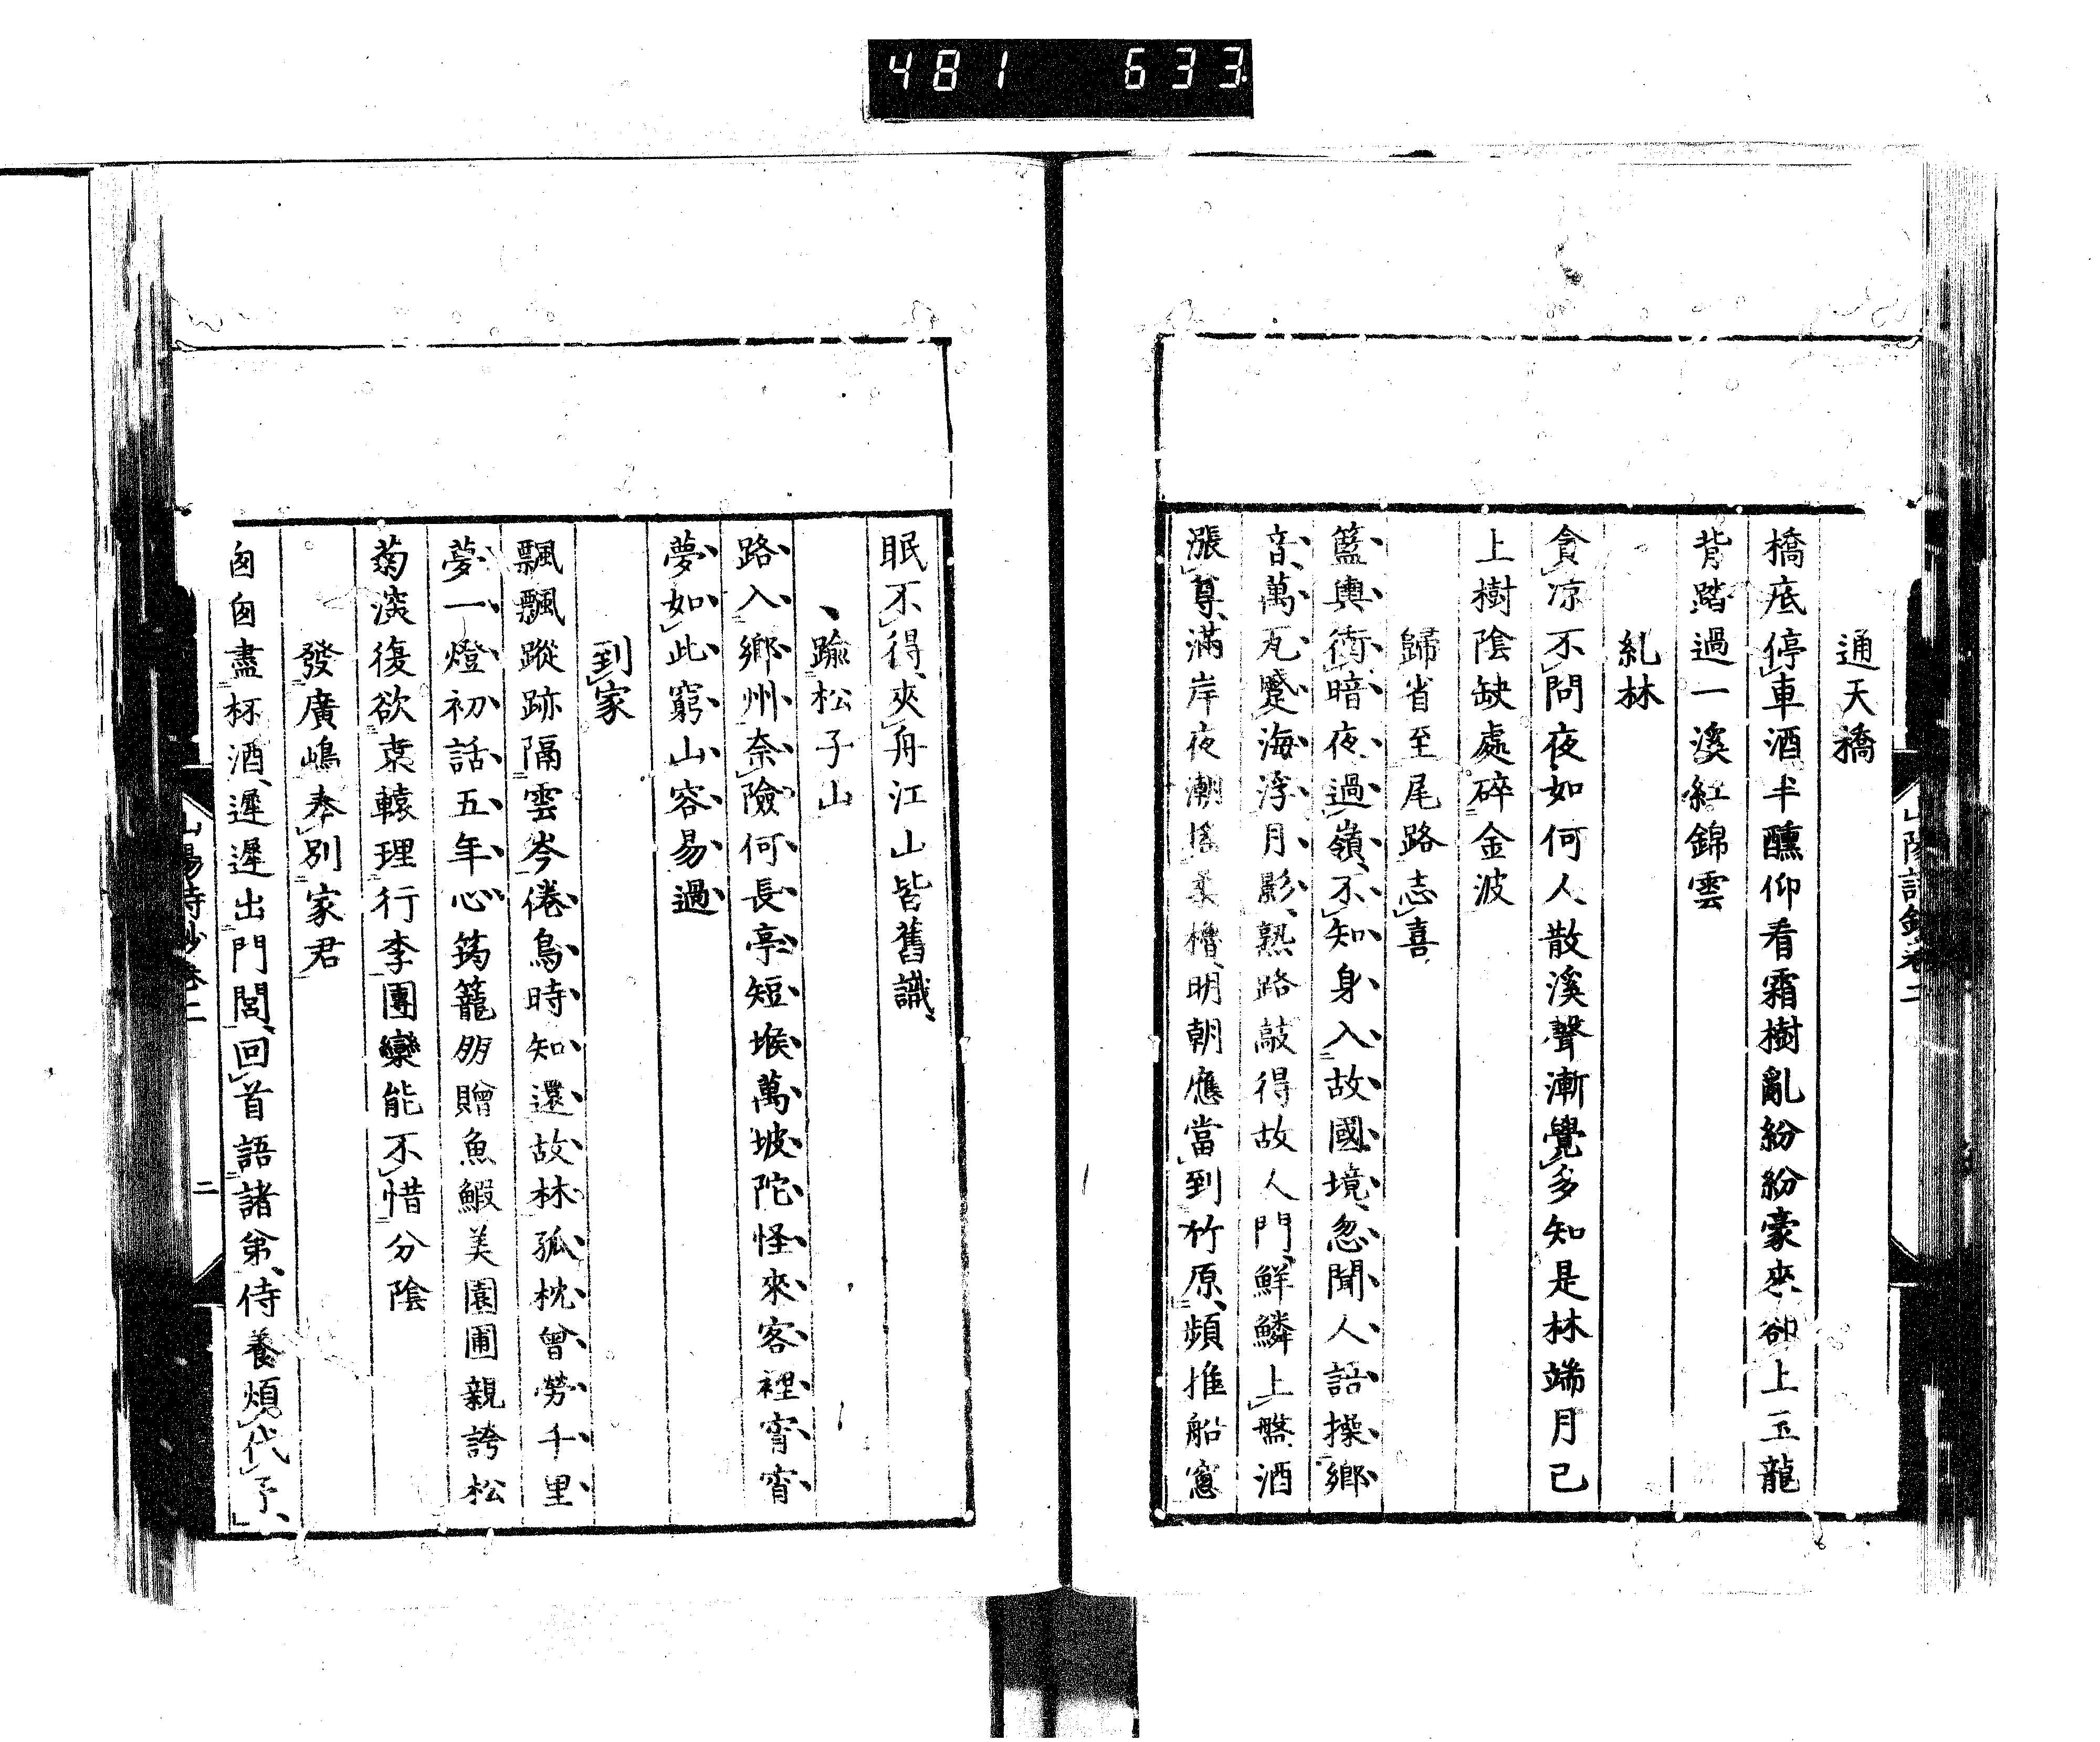 481 633
通天橋
橋底停車酒半醺仰看霜樹亂紛紛豪來卻上玉龍
背踏過一溪紅錦雲
糺林
貪凉不問夜如何人散溪聲漸覺多知是林端月已
上樹陰缺處碎金波
歸省至尾路志喜
籃輿衝暗夜過嶺不知身入故國境忽聞人語操鄉
音萬瓦甃海浮月影熟路敲得故人門鮮鱗上盤酒
漲尊滿岸夜潮搖柔櫓明朝應當到竹原頻推船窻
眠不得夾舟江山皆舊識
踰松子山
路入鄉州奈險何長亭短堠萬坡陀怪來客裡宵宵
夢如此窮山容易過
到家
飄飄蹤跡隔雲岑倦鳥時知還故林孤枕曾勞千里
夢一燈初話五年心筠籠朋贈魚鰕美園圃親誇松
菊深復欲東轅理行李團欒能不惜分陰
發廣嶋奉別家君
匆匆盡杯酒遲遲出門閭回首語諸弟侍養煩代予
山陽詩鈔卷二
二